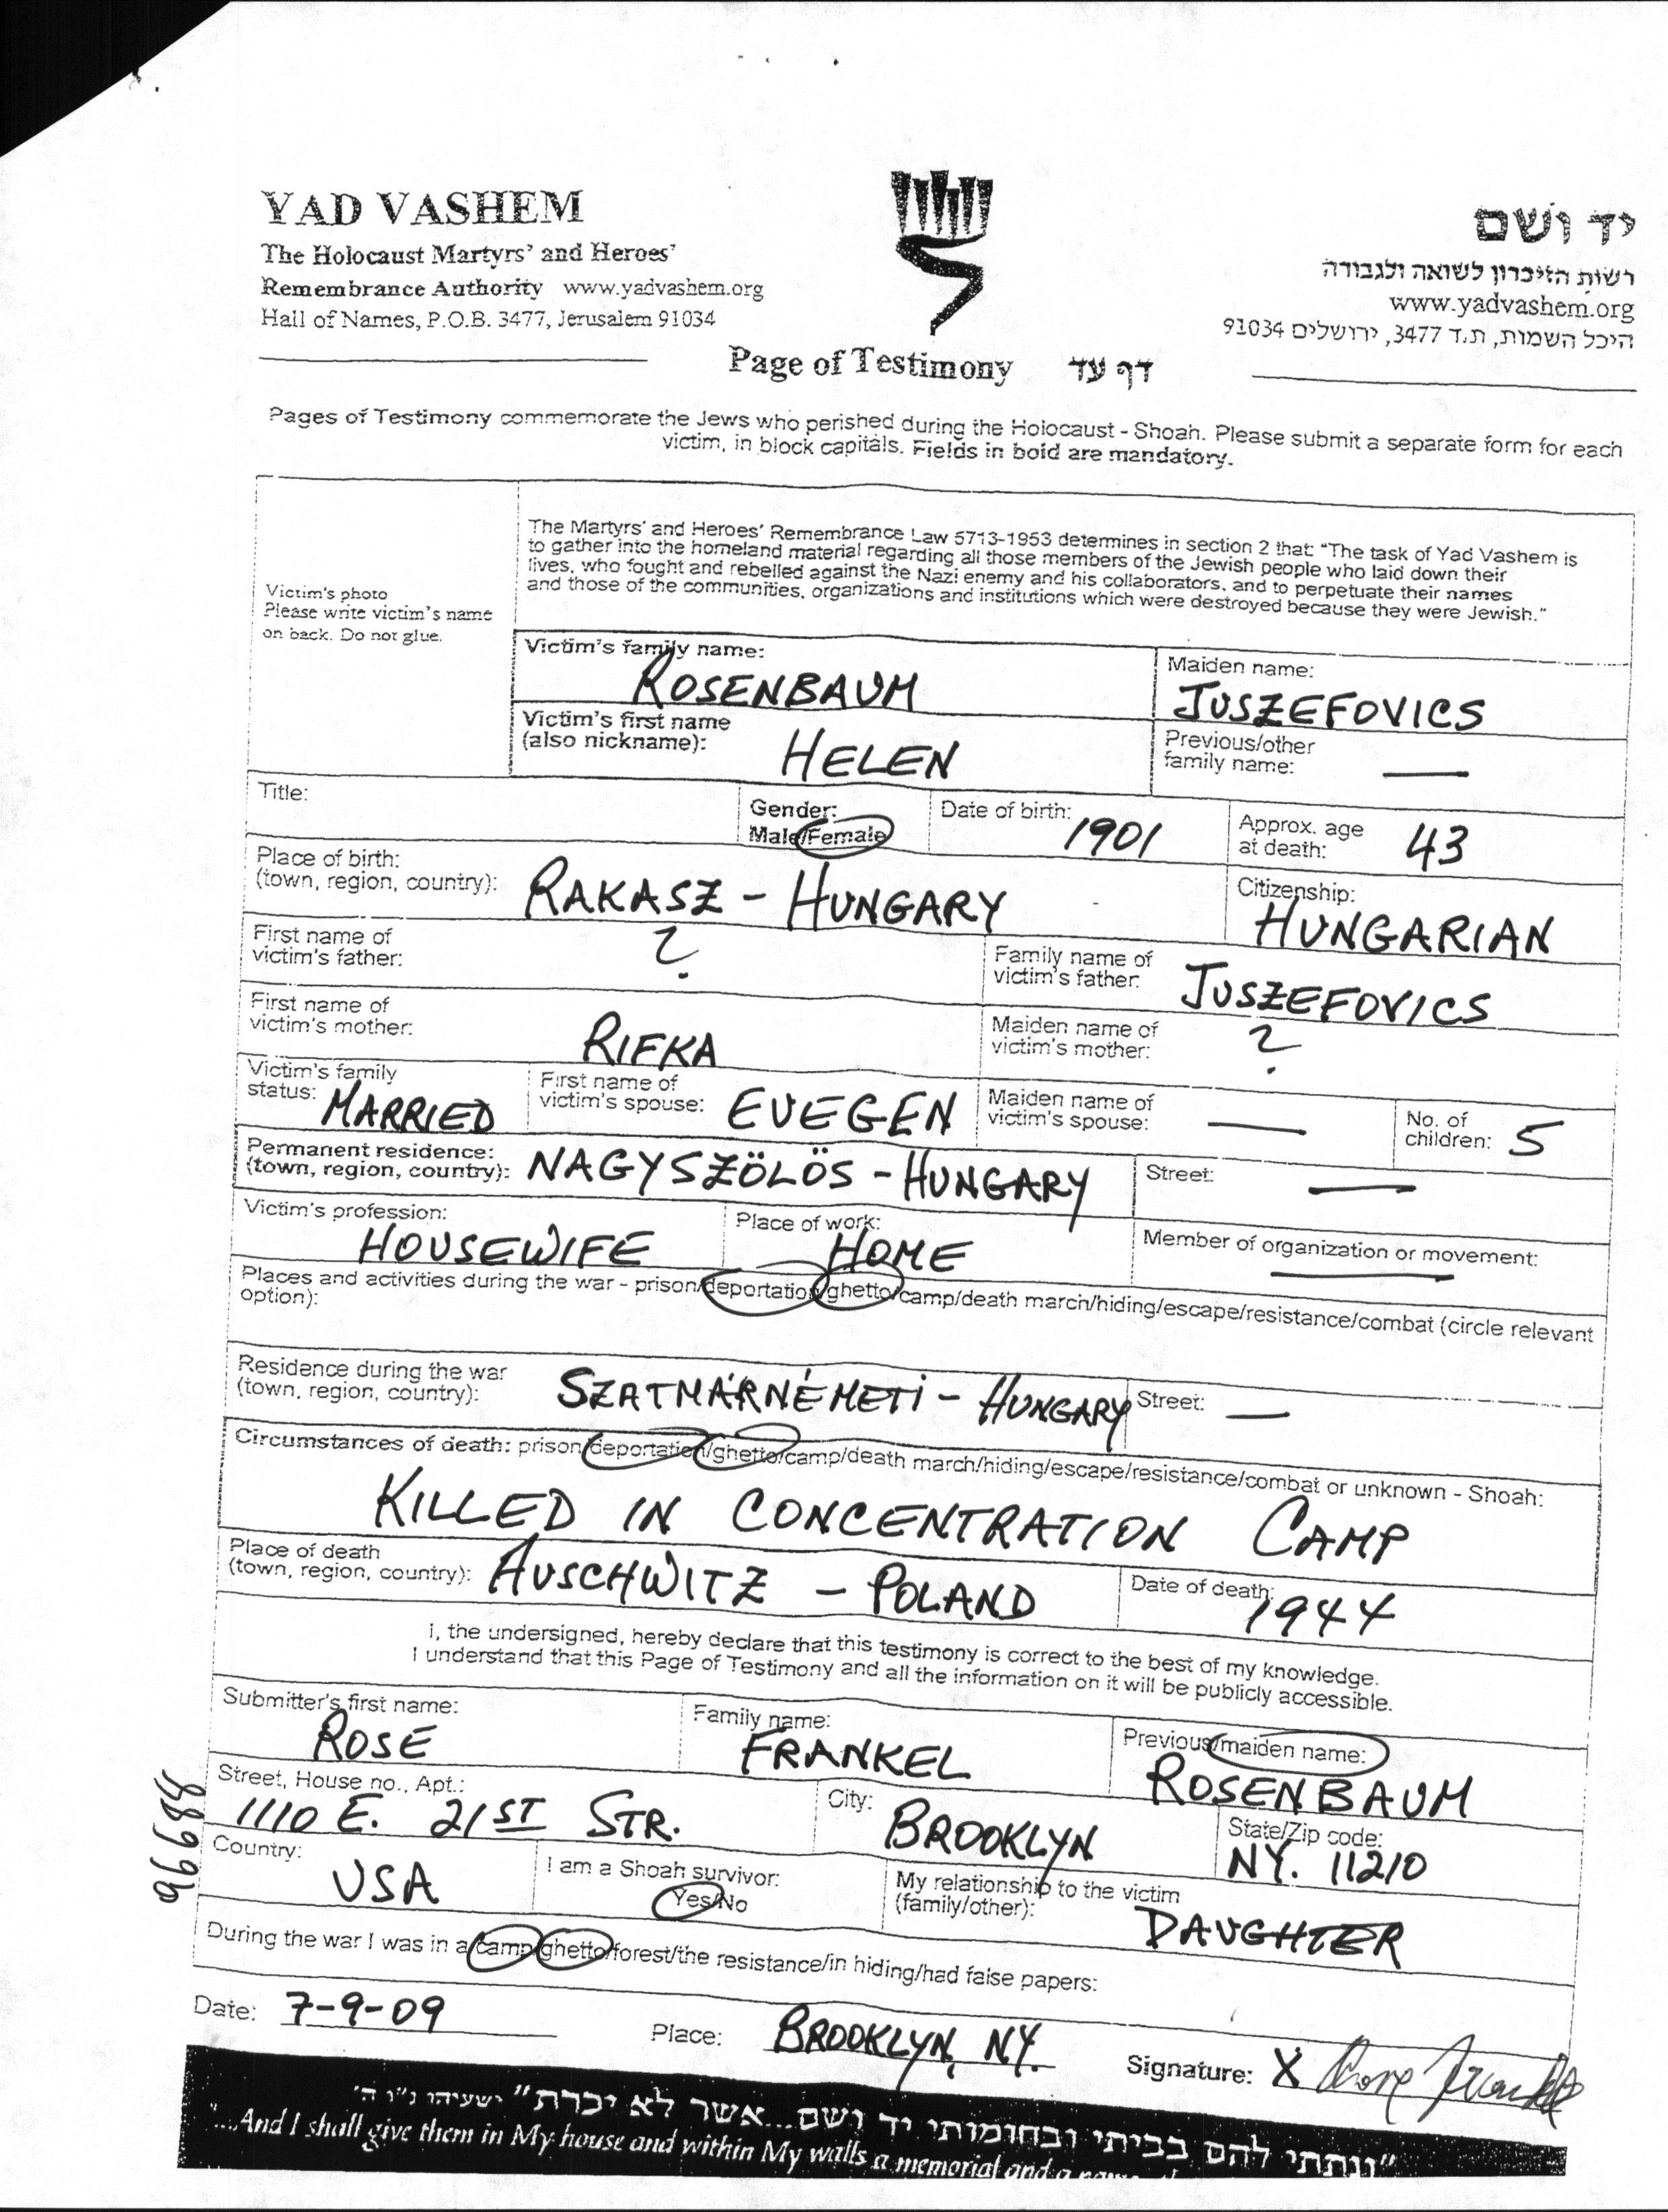 YAD VASHEM
The Holocaust Martyrs' and Heroes'
Remembrance Authority www.yadvashem.org
Hall of Names, P.O.B. 3477, Jerusalem 91034
יד ושם
רשות הזיכרון לשואה ולגבורה
www.yadvashem.org
היכל השמות, ת.ד 3477, ירושלים 91034
Page of Testimony דף עד
Pages of Testimony commemorate the Jews who perished during the Holocaust - Shoah. Please submit a separate form for each
victim, in block capitals. Fields in bold are mandatory.
Victim's photo
Please write victim's name
on back. Do not glue.
The Martyrs' and Heroes' Remembrance Law 5713-1953 determines in section 2 that: "The task of Yad Vashem is
to gather into the homeland material regarding all those members of the Jewish people who laid down their
lives, who fought and rebelled against the Nazi enemy and his collaborators, and to perpetuate their names
and those of the communities, organizations and institutions which were destroyed because they were Jewish."
Victim's family name: ROSENBAUM
Maiden name: JUSZEFOVICS
Victim's first name
(also nickname): HELEN
Previous/other
family name: —
Title:
Gender:
Male/Female
Date of birth: 1901
Approx. age
at death: 43
Place of birth:
(town, region, country): RAKASZ - HUNGARY
Citizenship: HUNGARIAN
First name of
victim's father: ?
Family name of
victim's father: JUSZEFOVICS
First name of
victim's mother: RIFKA
Maiden name of
victim's mother: ?
Victim's family
status: MARRIED
First name of
victim's spouse: EUEGEN
Maiden name of
victim's spouse: —
No. of
children: 5
Permanent residence:
(town, region, country): NAGYSZÖLÖS - HUNGARY
Street: —
Victim's profession: HOUSEWIFE
Place of work: HOME
Member of organization or movement: —
Places and activities during the war - prison/deportation/ghetto/camp/death march/hiding/escape/resistance/combat (circle relevant
option):
Residence during the war
(town, region, country): SZATMÁRNÉMETI - HUNGARY
Street: —
Circumstances of death: prison/deportation/ghetto/camp/death march/hiding/escape/resistance/combat or unknown - Shoah:
KILLED IN CONCENTRATION CAMP
Place of death
(town, region, country): AUSCHWITZ - POLAND
Date of death: 1944
I, the undersigned, hereby declare that this testimony is correct to the best of my knowledge.
I understand that this Page of Testimony and all the information on it will be publicly accessible.
Submitter's first name: ROSE
Family name: FRANKEL
Previous/maiden name: ROSENBAUM
Street, House no., Apt.: 1110 E. 21ST STR.
City: BROOKLYN
State/Zip code: NY. 11210
Country: USA
I am a Shoah survivor:
Yes/No
My relationship to the victim
(family/other): DAUGHTER
During the war I was in a camp/ghetto/forest/the resistance/in hiding/had false papers:
96688
Date: 7-9-09
Place: BROOKLYN, NY.
Signature: X Rose Frankel
"ונתתי להם בביתי ובחומותי יד ושם...אשר לא יכרת" ישעיהו נ"ו ה'
"...And I shall give them in My house and within My walls a memorial and a